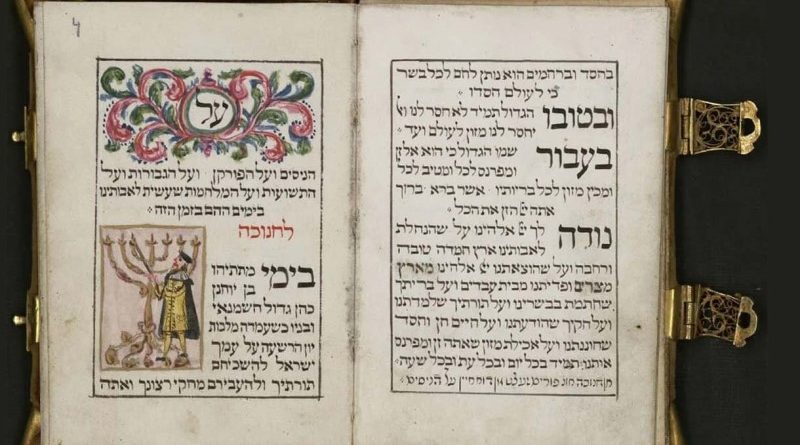 בחסד וברחמים הוא נותן לחם לכל בשר
כי לעולם חסדו
ובטובו הגדול תמיד לא חסר לנו וא
יחסר לנו מזון לעולם ועד
בעבור שמו הגדול כי הוא אל זן
ומפרנס לכל ומטיב לכל
ומכין מזון לכל בריותיו אשר ברא ברוך
אתה יי הזן את הכל
נודה לך יי אלהינו על שהנחלת
לאבותינו ארץ חמדה טובה
ורחבה ועל שהוצאתנו יי אלהינו מארץ
מצרים ופדיתנו מבית עבדים ועל בריתך
שחתמת בבשרינו ועל תורתיך שלמדתנו
ועל חקיך שהודעתנו ועל חיים חן וחסד
שחוננתנו ועל אכילת מזון שאתה זן ומפרנס
אותנו תמיד בכל יום ובכל עת ובכל שעה
חנוכה פורים על הניסים
על
הניסים ועל הפורקן ועל הגבורות ועל
התשועות ועל המלחמות שעשית לאבותינו
בימים ההם בזמן הזה
לחנוכה
בימי מתתיהו
בן יוחנן
כהן גדול חשמנאי
ובניו כשעמדה מלכות
יון הרשעה על עמך
ישראל להשכיחם
תורתיך ולהעבירם מחקי רצונך ואתה